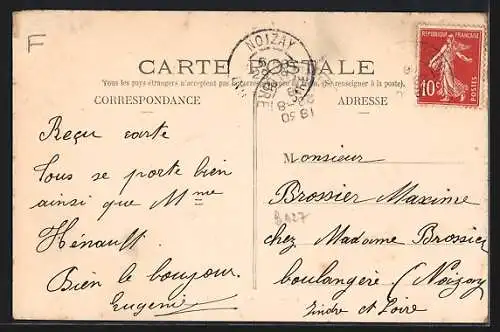 F
NOIZAY
CARTE POSTALE
Tous les pays étrangers n'acceptent pas la (se renseigner à la poste).
CORRESPONDANCE
ADRESSE
REPUBLIQUE FRANÇAISE
10c
POSTES
Reçu carte
Tous se porte bien
ainsi que Mme
Hénault.
Bien le boujour.
Eugenie
Monsieur
Brossier Maxime
chez Madame Brossier
boulangère (Noizay
Indre et Loire
B427